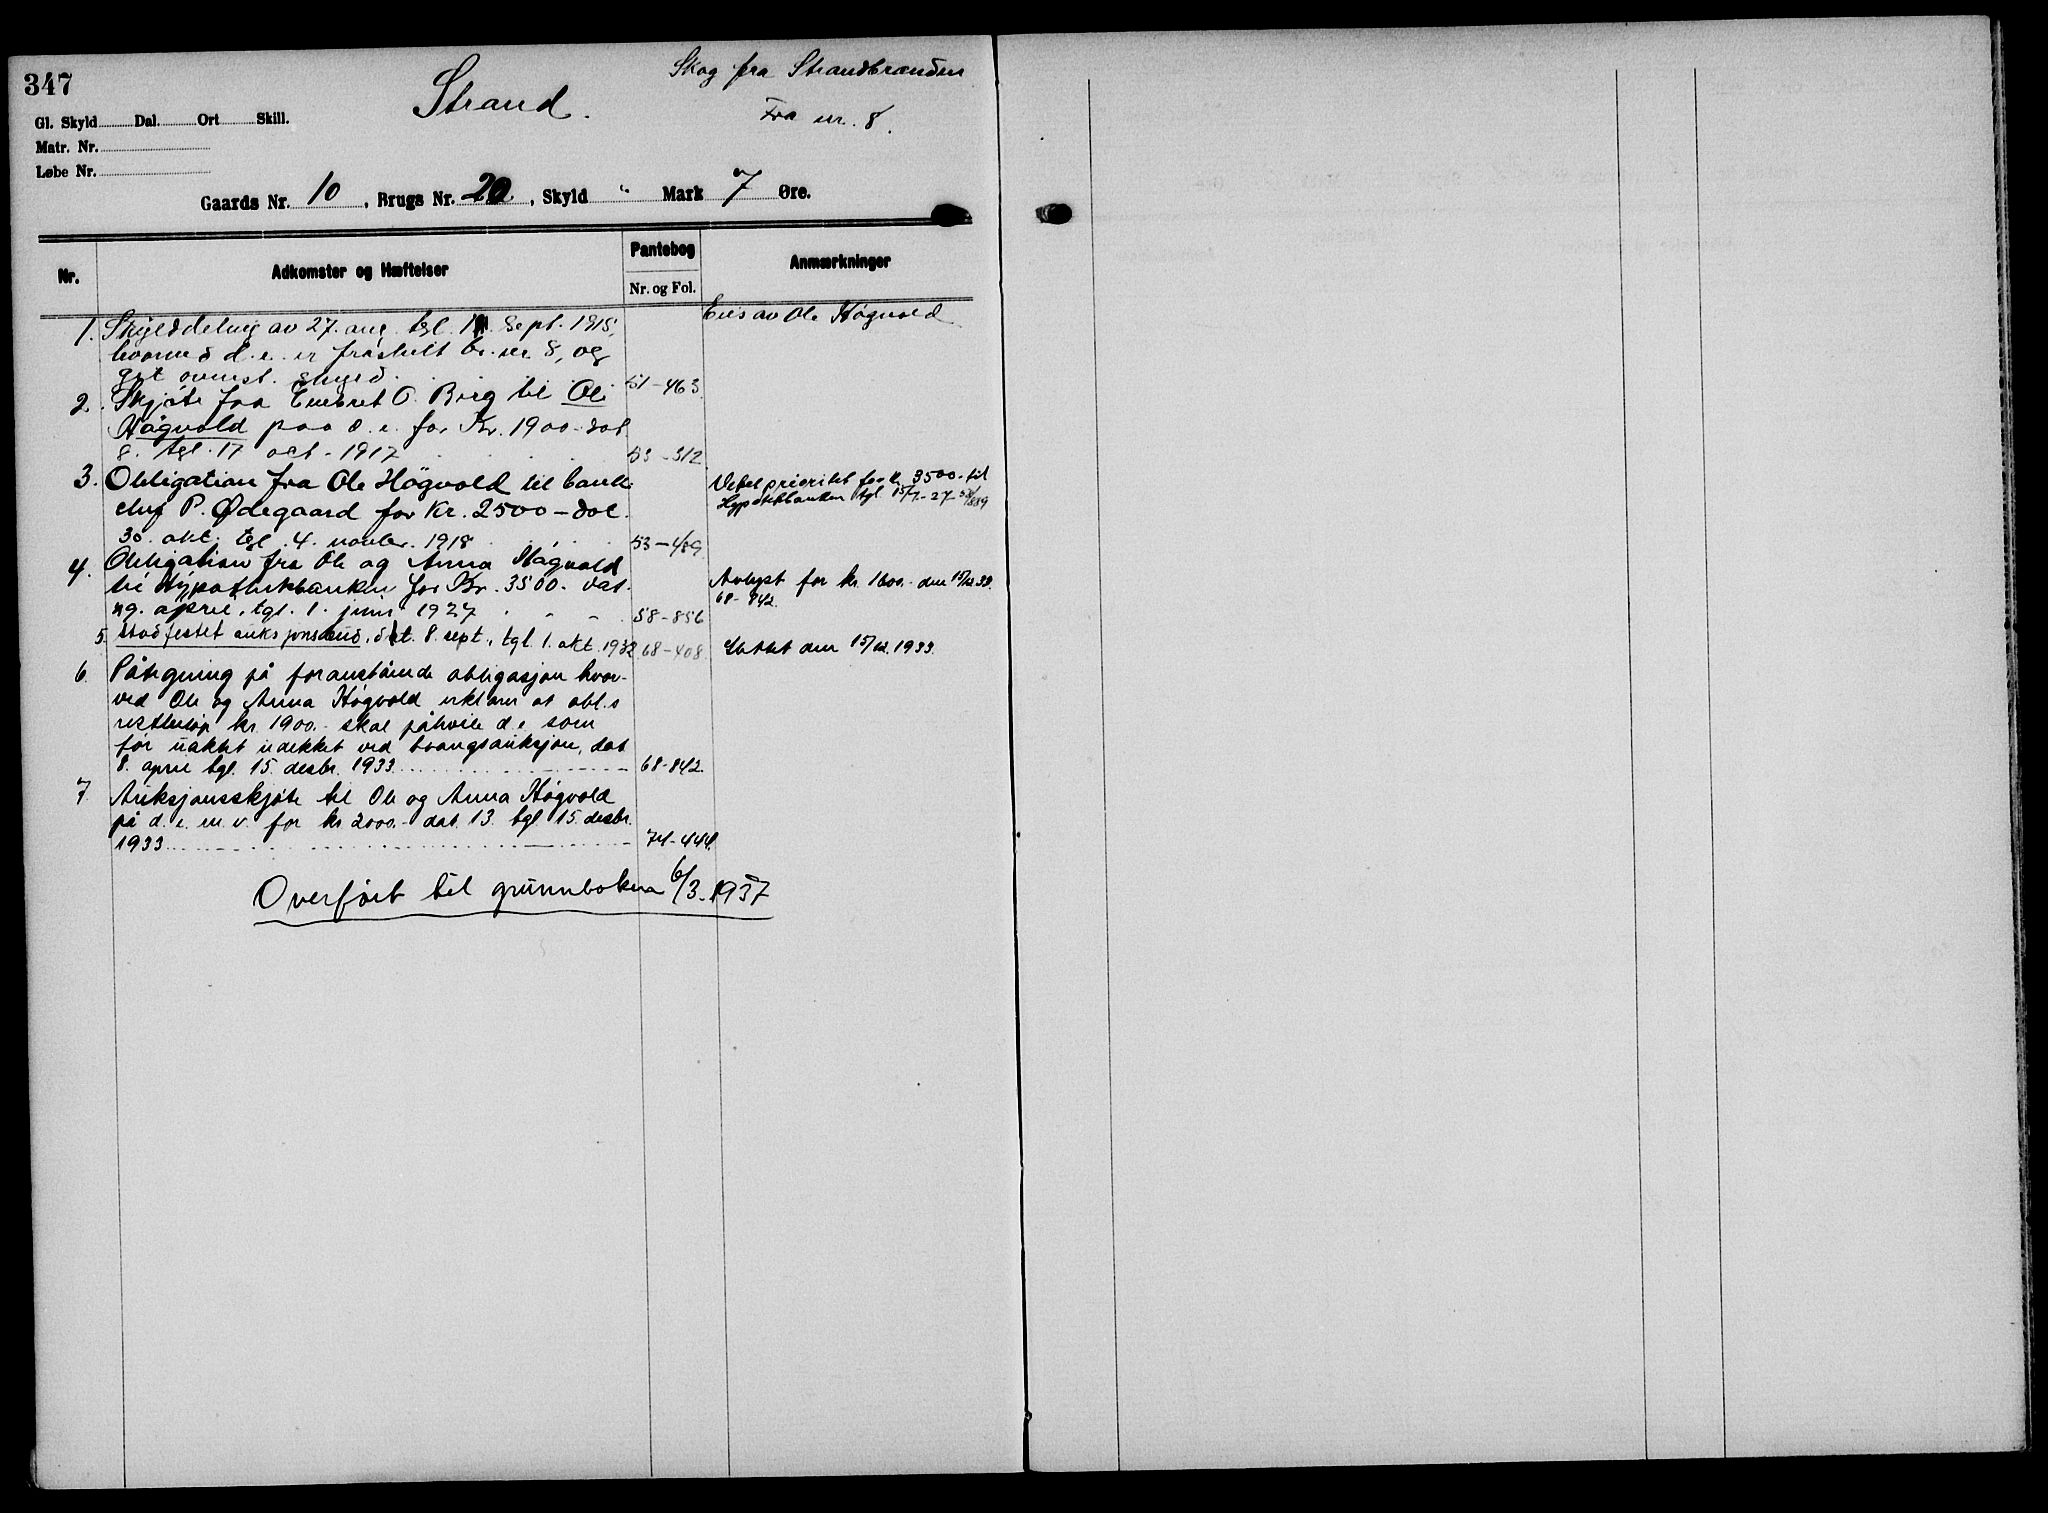 347
Strand.
Skog fra Strandbrænden
Fra nr. 8.
Gl. Skyld Dal. Ort Skill.
Matr. Nr.
Løbe Nr.
Gaards Nr. 10, Brugs Nr. 20, Skyld " Mark 7 Øre.
Nr. Adkomster og Hæftelser Pantebog Nr. og Fol. Anmærkninger
Eies av Ole Högvold
1. Skylddeling av 27. aug. tgl. Sept. 1915,
hvorved d. e. er fraskilt br. nr 8, og
git ovenst. skyld. 51-463.
2. Skjøte fra Embret O. Berg til Ole
Högvold paa d. e. for Kr. 1900 - dat
8. tgl. 17 oct. 1917 53-312
3. Obligation fra Ole Högvold til bank-
chef P. Ødegaard for Kr. 2500 - dat.
30. okt. tgl. 4. novbr. 1918 53-489.
Veket prioritet for kr 3500.- til
Hypotekbanken tgl. 15/7-27 58/889
4. Obligation fra Ole og Anna Högvold
til Hypothekbanken for Kr. 3500.- dat.
29. april, tgl. 1. juni 1927 58-856
Avlyst for kr. 1600.- den 15/12 33.
68-842.
5. Stadfestet auksjonsbud, dat. 8. sept., tgl. 1. okt. 1932 68-408
Slettet den 15/12. 1933.
6. Påtegning på foranstående obligasjon hvor-
ved Ole og Anna Högvold erklærer at obl.s
restbeløp kr. 1900.- skal påhvile d.e. som
før uaktet udekket ved tvangsauksjon, dat
8. april tgl. 15. desbr. 1933. 68-842.
7. Auksjonsskjøte til Ole og Anna Högvold
på d. e. m. v. for kr. 2000.- dat. 13. tgl. 15. desbr.
1933 71-444.
Overført til grunnboken 6/3. 1937